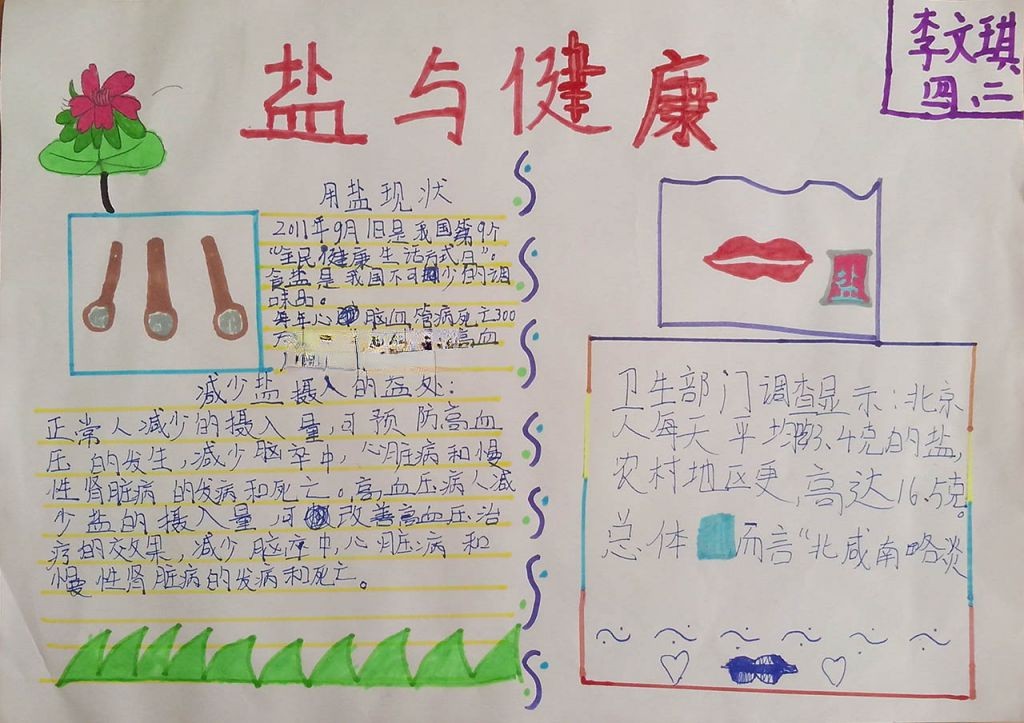 盐与健康
李文琪
四、二
用盐现状
2011年9月1日是我国第9个
“全民健康生活方式日”。
食盐是我国不可少的调
味品。
每年心脑血管病死亡300
高血
减少盐摄入的益处：
正常人减少的摄入量，可预防高血
压的发生，减少脑卒中，心脏病和慢
性肾脏病的发病和死亡。高血压病人减
少盐的摄入量，可改善高血压治
疗的效果，减少脑卒中，心脏病和
慢性肾脏病的发病和死亡。
盐
卫生部门调查显示：北京
人每天平均13.4克的盐，
农村地区更高达16.5克。
总体而言“北咸南略淡